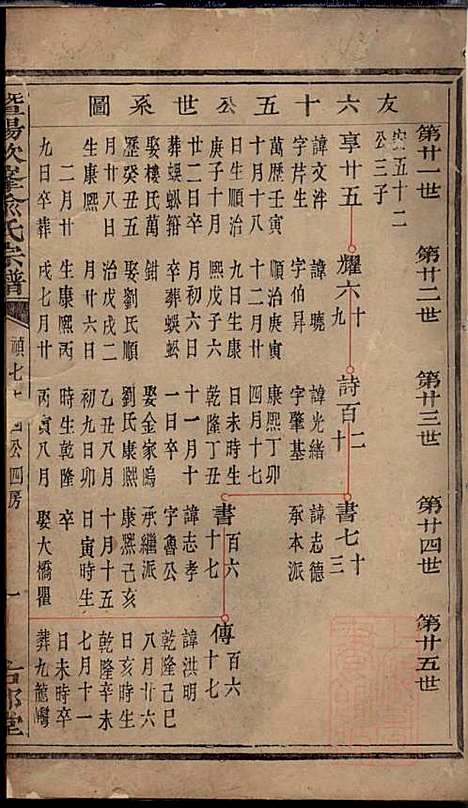 友六十五公世系圖
第廿一世
第廿二世
第廿三世
第廿四世
第廿五世
五十二
公三子
享廿五
諱文泮
字芹生
萬歷壬寅
十月十八
日生順治
庚子十月
廿二日卒
葬蜈蚣箝
娶樓氏萬
歷癸丑五
月廿八日
生康熙
二月廿
九日卒葬
耀六十九
諱曉
字伯昇
順治庚寅
十二月廿
九日生康
熙戊子六
月初六日
卒葬蜈蚣
鉗
娶劉氏順
治戊戌二
月廿六日
生康熙丙
戌七月廿
詩百二十
諱光緒
字肇基
康熙丁卯
四月十七
日未時生
乾隆丁丑
十一月十
一日卒
娶金家塢
劉氏康熙
乙丑八月
初九日卯
時生乾隆
丙寅八月
書七十三
諱志德
承本派
書百六十七
諱志孝
字魯公
承繼派
康熙己亥
十月十五
日寅時生
卒
娶大橋瞿
傳百六十七
諱洪明
乾隆己巳
八月廿六
日亥時生
乾隆辛未
七月十一
日未時卒
葬九龍
暨陽次峯俞氏宗譜
公四房
一
堂